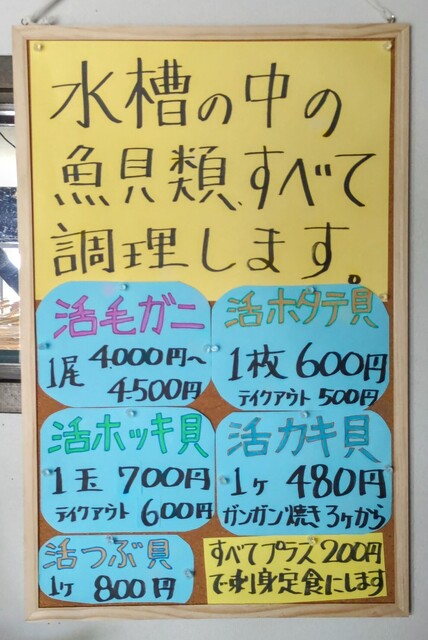 水槽の中の
魚貝類すべて
調理します。
活毛ガニ
1尾 4.000円〜
4.500円
活ホタテ貝
1枚 600円
テイクアウト 500円
活ホッキ貝
1玉 700円
テイクアウト 600円
活カキ貝
1ヶ 480円
ガンガン焼き 3ヶから
活つぶ貝
1ケ 800円
すべてプラス200円
で刺身定食にします